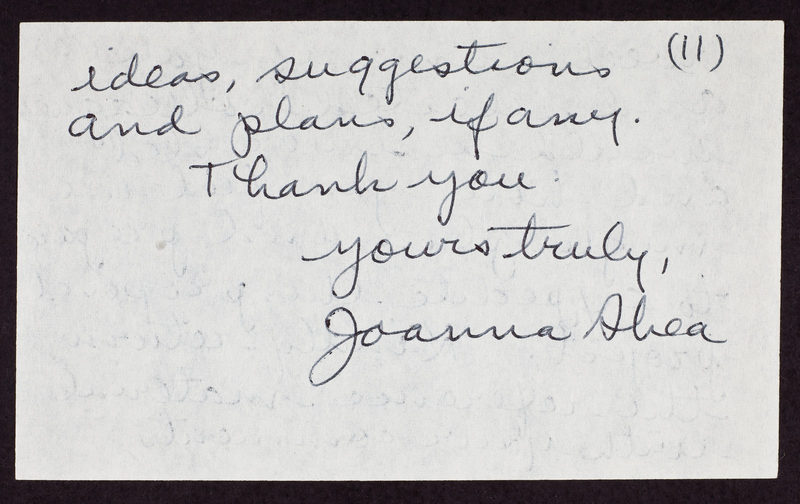 (11)
ideas, suggestions
and plans, if any.
Thank you
yours truly,
Joanna Shea